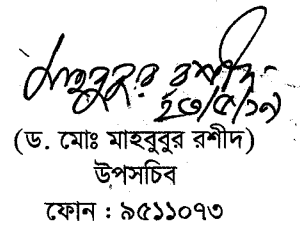 মাহবুবুর রশীদ
২৩/৫/১৭
(ড. মোঃ মাহবুবুর রশীদ)
উপসচিব
ফোন : ৯৫১১০৭৩